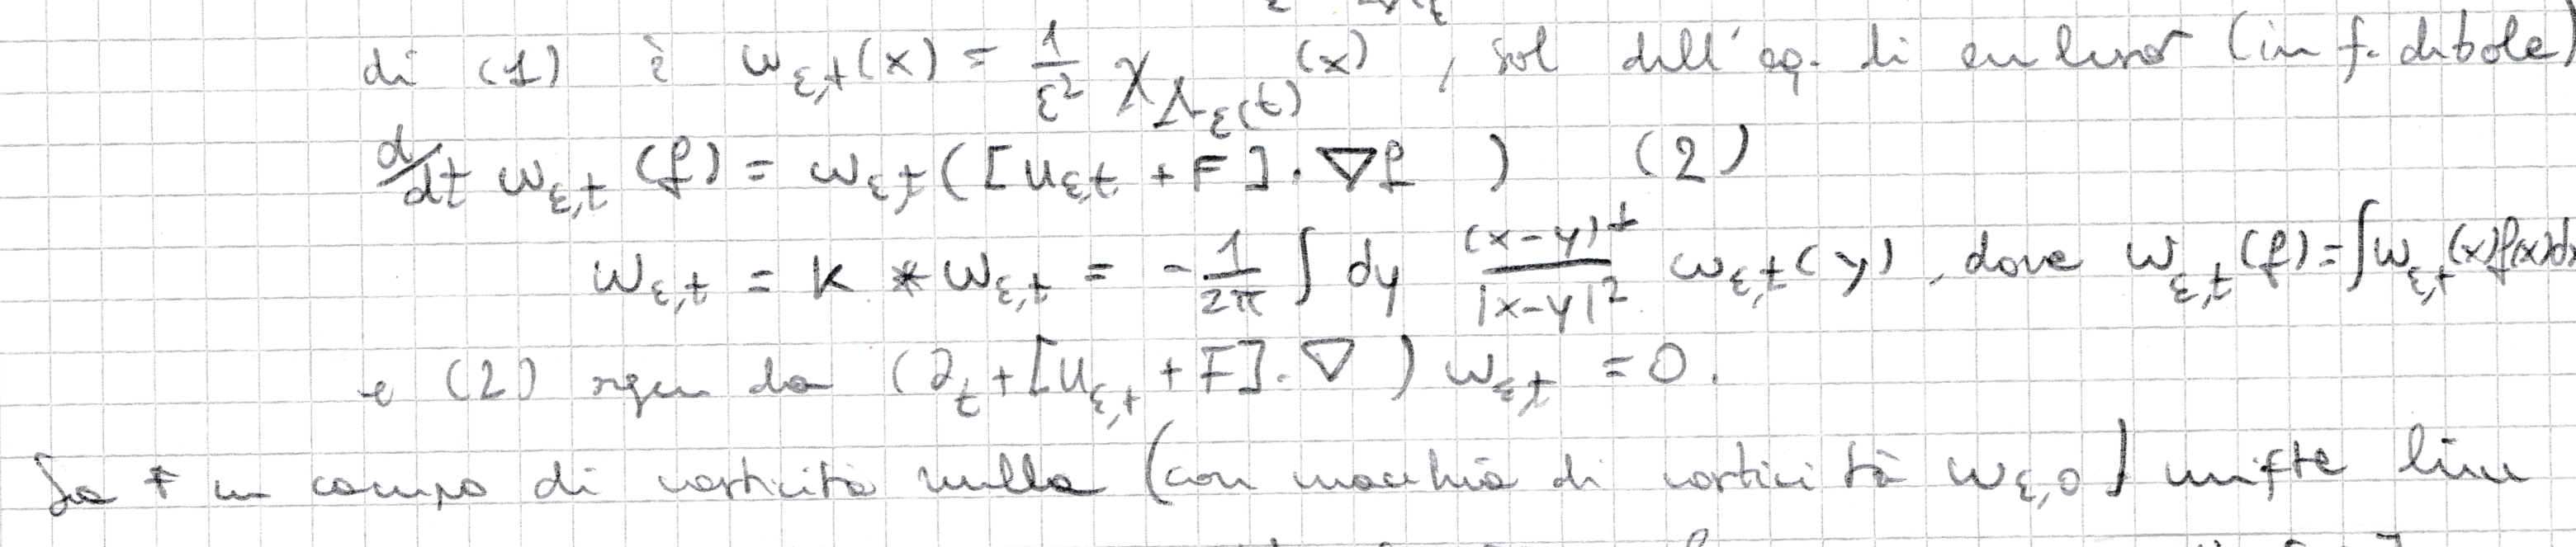 di (1) è ω_{ε,t}(x) = 1/ε² χ_{Λ_ε(t)}(x), sol dell'eq. di eulero (in f. debole)
d/dt ω_{ε,t}(f) = ω_{ε,t}([u_{ε,t} + F]·∇f) (2)
ω_{ε,t} = K * ω_{ε,t} = -1/2π ∫ dy (x-y)^⊥/|x-y|² ω_{ε,t}(y), dove ω_{ε,t}(f) = ∫ω_{ε,t}(x)f(x)dx
e (2) segue da (∂_t + [u_{ε,t} + F]·∇) ω_{ε,t} = 0.
Sia F un campo di vorticità nulla (con macchia di vorticità ω_{ε,0}) unifte